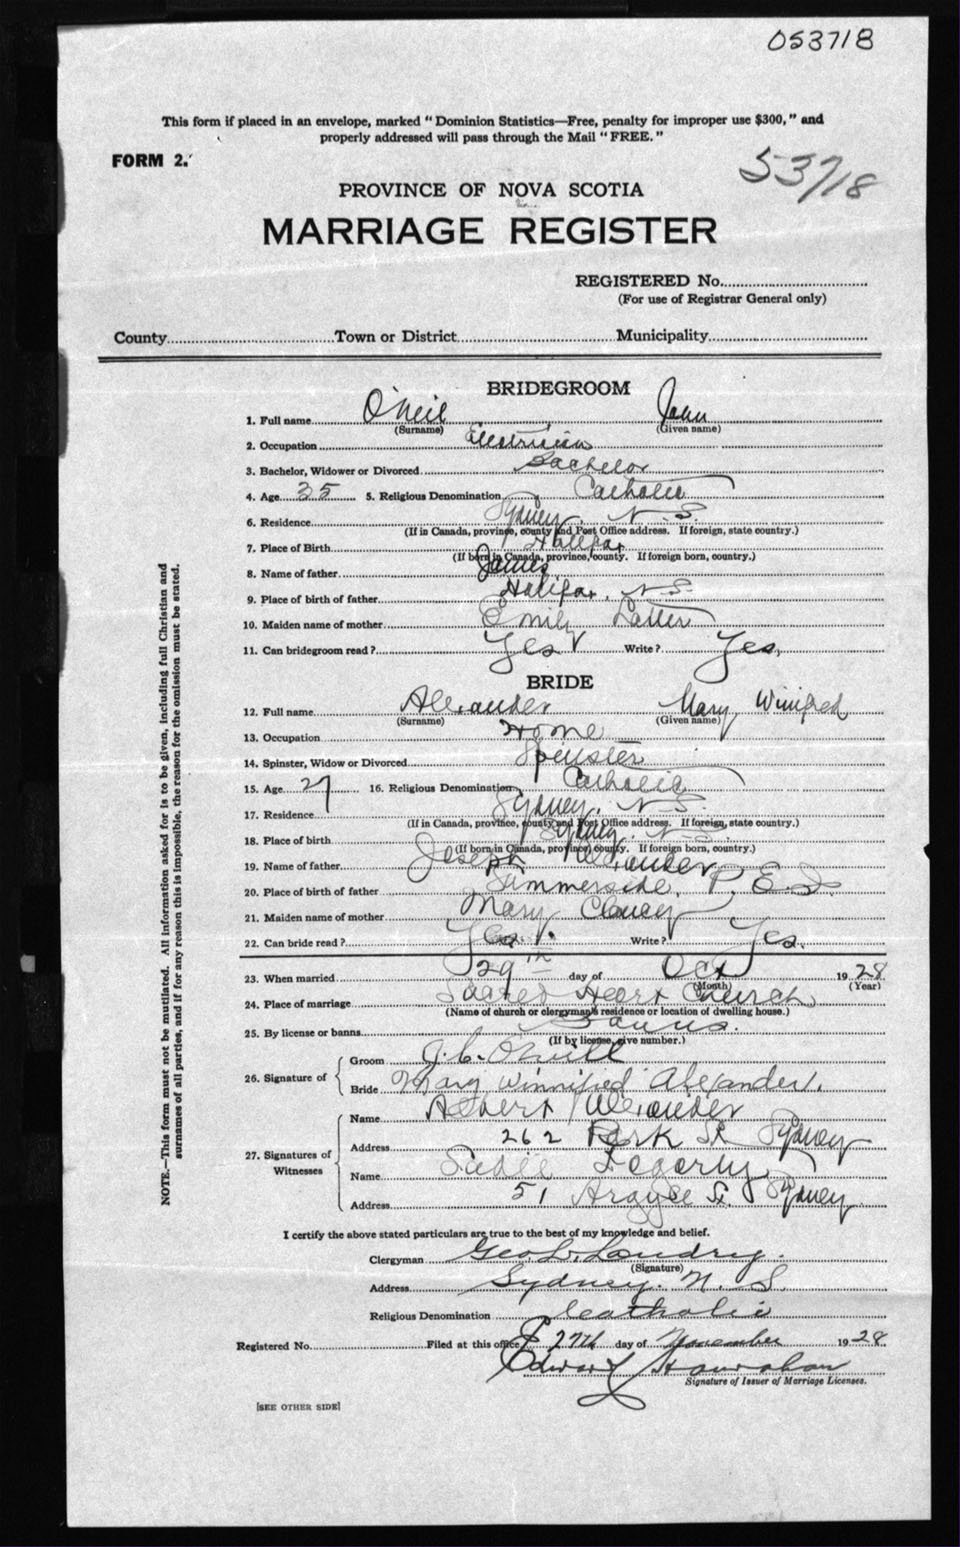 053718
This form if placed in an envelope, marked "Dominion Statistics—Free, penalty for improper use $300," and
properly addressed will pass through the Mail "FREE."
FORM 2.
53718
PROVINCE OF NOVA SCOTIA
MARRIAGE REGISTER
REGISTERED No.
(For use of Registrar General only)
County Town or District Municipality
BRIDEGROOM
1. Full name O'Neil John
(Surname) (Given name)
2. Occupation Electrician
3. Bachelor, Widower or Divorced Bachelor
4. Age 35 5. Religious Denomination Catholic
6. Residence Sydney, N-S
(If in Canada, province, county and Post Office address. If foreign, state country.)
7. Place of Birth Halifax
(If born in Canada, province, county. If foreign born, country.)
8. Name of father James
9. Place of birth of father Halifax, N-S.
10. Maiden name of mother Emily Latter
11. Can bridegroom read? Yes Write? Yes,
BRIDE
12. Full name Alexander Mary Winifred
(Surname) (Given name)
13. Occupation Home
14. Spinster, Widow or Divorced Spinster
15. Age 27 16. Religious Denomination Catholic
17. Residence Sydney, N-S.
(If in Canada, province, county and Post Office address. If foreign, state country.)
18. Place of birth Sydney, N-S.
(If born in Canada, province, county. If foreign born, country.)
19. Name of father Joseph Alexander
20. Place of birth of father Summerside, P.E.I
21. Maiden name of mother Mary Clancy
22. Can bride read? Yes. Write? Yes.
23. When married 29th day of Oct 1928
(Month) (Year)
24. Place of marriage Sacred Heart Church
(Name of church or clergyman's residence or location of dwelling house.)
25. By license or banns Banns.
(If by license, give number.)
26. Signature of
Groom J.C. O'Neill
Bride Mary Winnifred Alexander.
27. Signatures of Witnesses
Name Albert Alexander
Address 262 Park St Sydney
Name Sadie Fogerty
Address 51 Argyle St Sydney
I certify the above stated particulars are true to the best of my knowledge and belief.
Clergyman Geo. L. Landry.
(Signature)
Address Sydney. N. S.
Religious Denomination Catholic
Registered No. Filed at this office 27th day of November 1928
Edward Hanrahan
Signature of Issuer of Marriage Licenses.
[SEE OTHER SIDE]
NOTE.—This form must not be mutilated. All information asked for is to be given, including full Christian and
surnames of all parties, and if for any reason this is impossible, the reason for the omission must be stated.